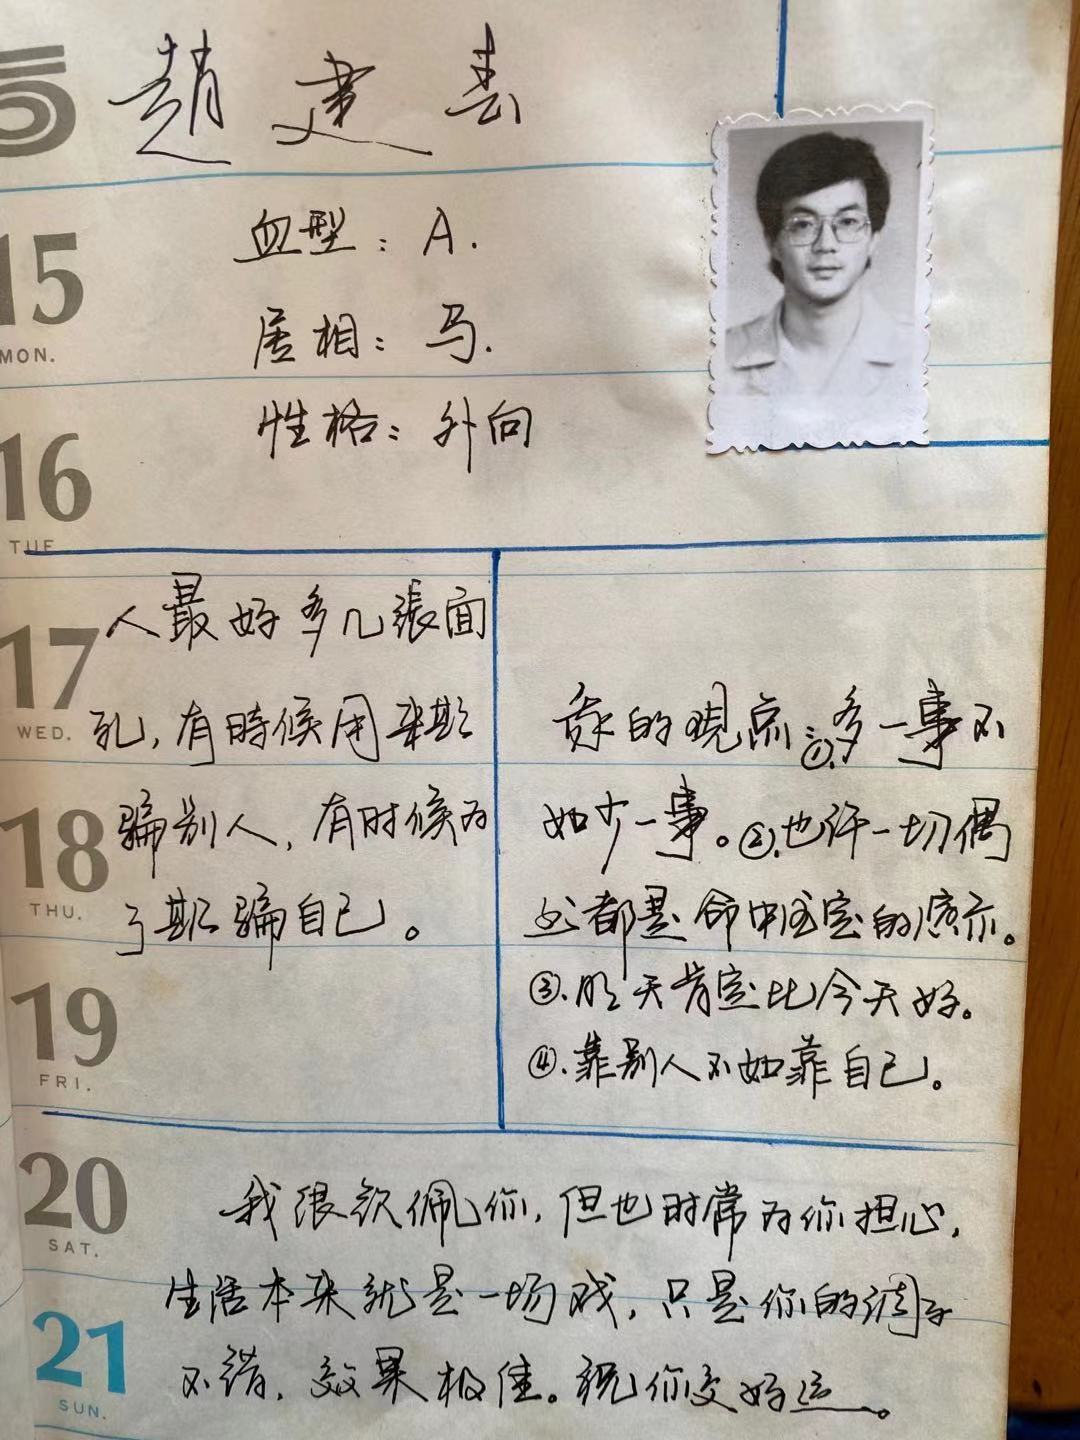 5
趙建春
15
MON.
血型：A.
属相：马.
16
TUE
性格：外向
17
WED.
人最好多几張面
孔，有時候用来欺
18
THU.
骗别人，有时候为
了欺骗自己。
19
FRI.
我的观点：①.多一事不
如少一事。②.也许一切偶
然都是命中注定的演示。
③.明天肯定比今天好。
④.靠别人不如靠自己。
20
SAT.
我很钦佩你，但也时常为你担心，
生活本来就是一场戏，只是你的调子
21
SUN.
不错，效果极佳。祝你交好运。